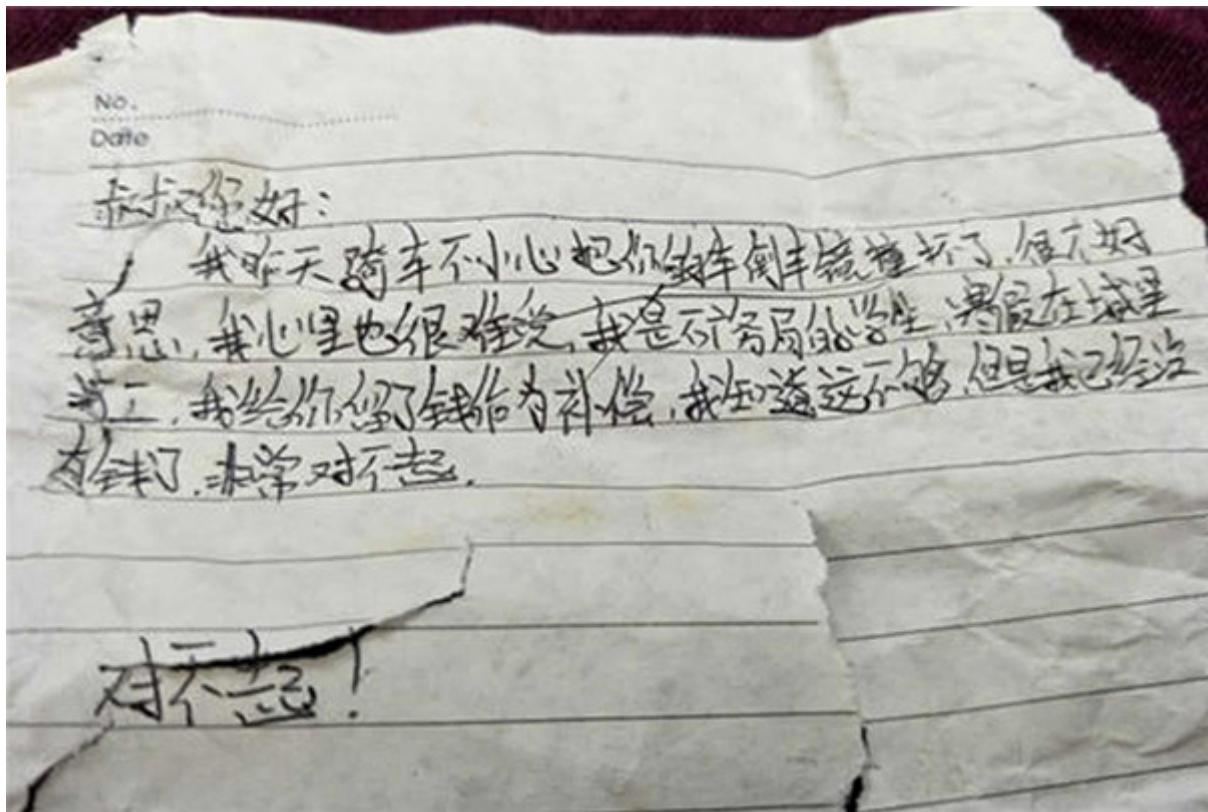 No.
Date
叔叔您好：
我昨天骑车不小心把你的车倒车镜撞坏了，很不好
意思，我心里也很难受，我是不务局的学生，寒假在城里
打工，我给你留了钱作为补偿，我知道这不够，但是我已经没
有钱了，非常对不起。
对不起！